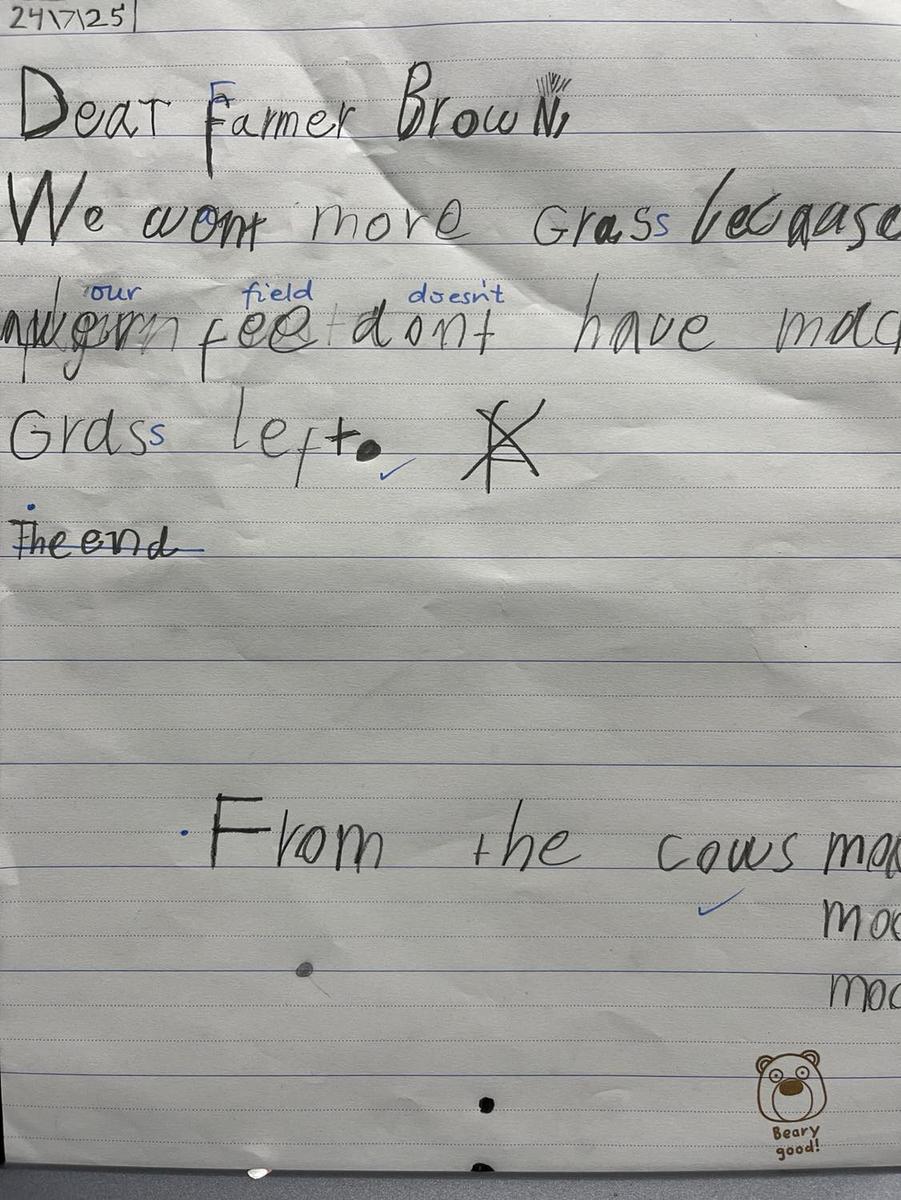 24\7\25
Dear Farmer Brown,
We want more Grass because
our field doesn't
feet dont have moc
Grass left.
The end
From the cows moo
moo
moo
Beary
good!